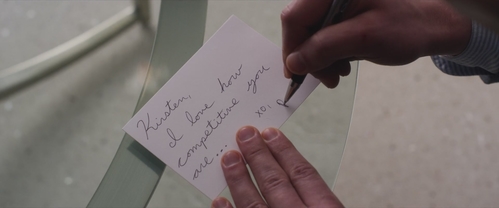 Kirsten,
I love how
competitive you
are...
xo,